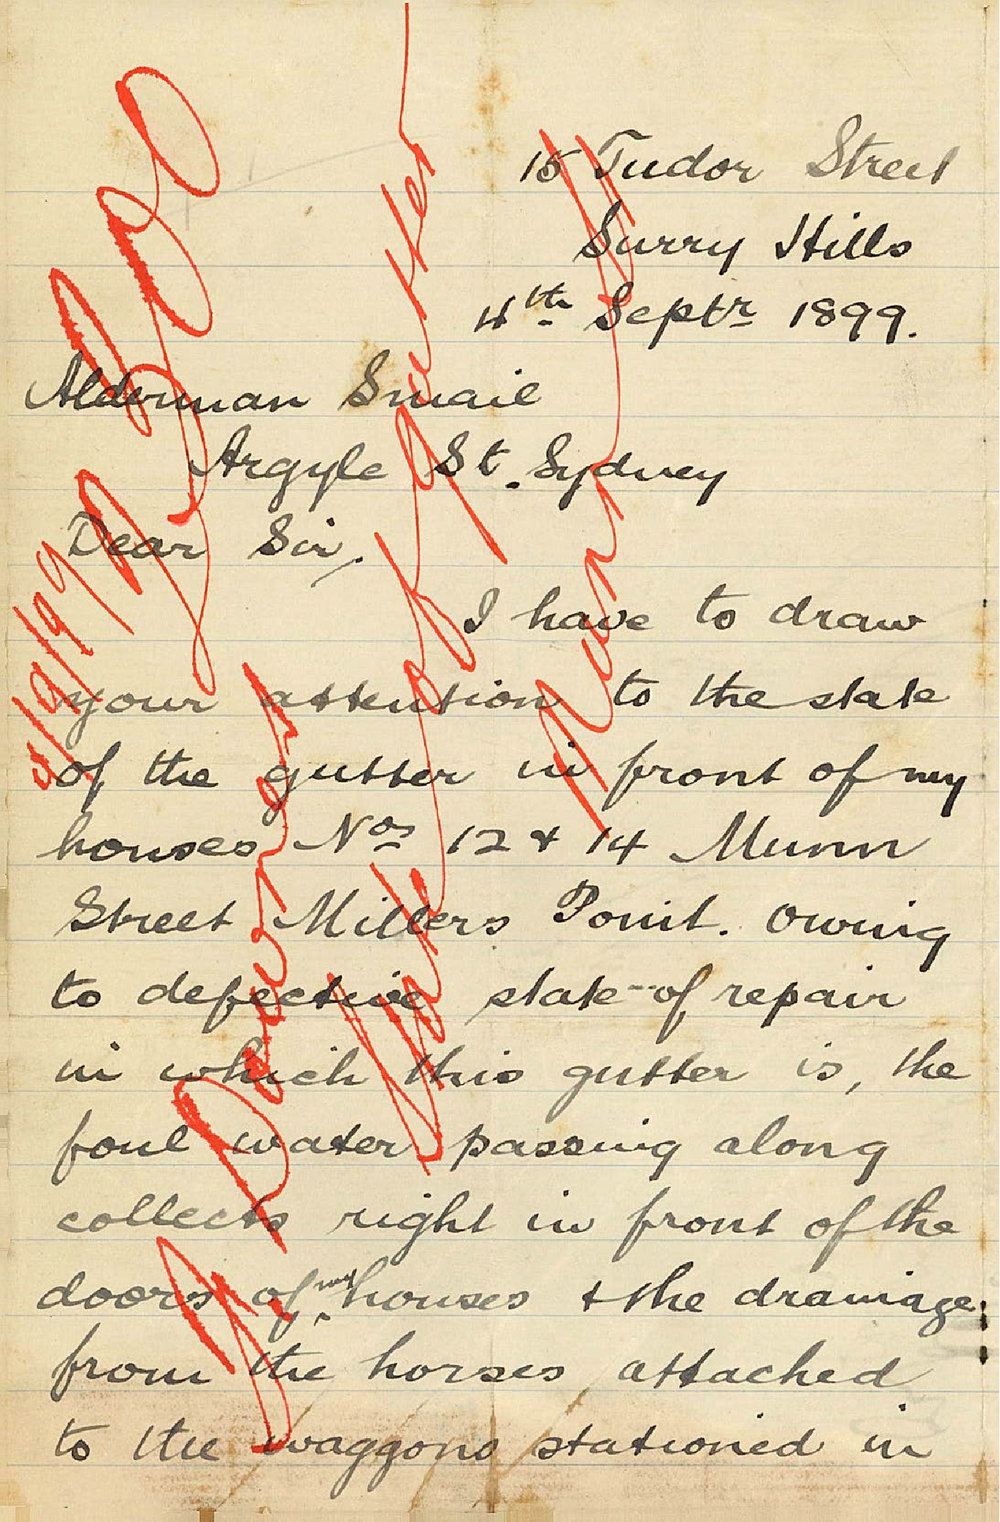 15 Tudor Street
Surry Hills
4th Septr 1899.
Alderman Smail
Argyle St. Sydney
Dear Sir,
I have to draw
your attention to the state
of the gutter in front of my
houses Nos 12 & 14 Munn
Street Millers Point. Owing
to defective state of repair
in which this gutter is, the
foul water passing along
collects right in front of the
doors of my houses & the drainage
from the horses attached
to the waggons stationed in
J Davies
State of gutter
Munn St